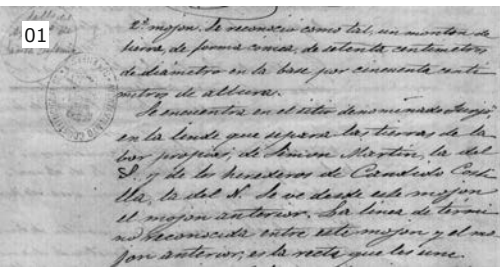 01
2º mojon. Se reconoció como tal, un monton de
tierra, de forma cónica, de setenta centimetros
de diámetro en la base por cincuenta centi-
metros de altura.
Se encuentra en el sitio denominado
en la linde que separa las tierras de la-
bor propias, de Simon Martin, la del
S. y de los herederos de Candido Costi-
lla, la del N. Se ve desde este mojon
el mojon anterior. La linea de térmi-
no reconocida entre este mojon y el mo-
jon anterior, es la recta que los une